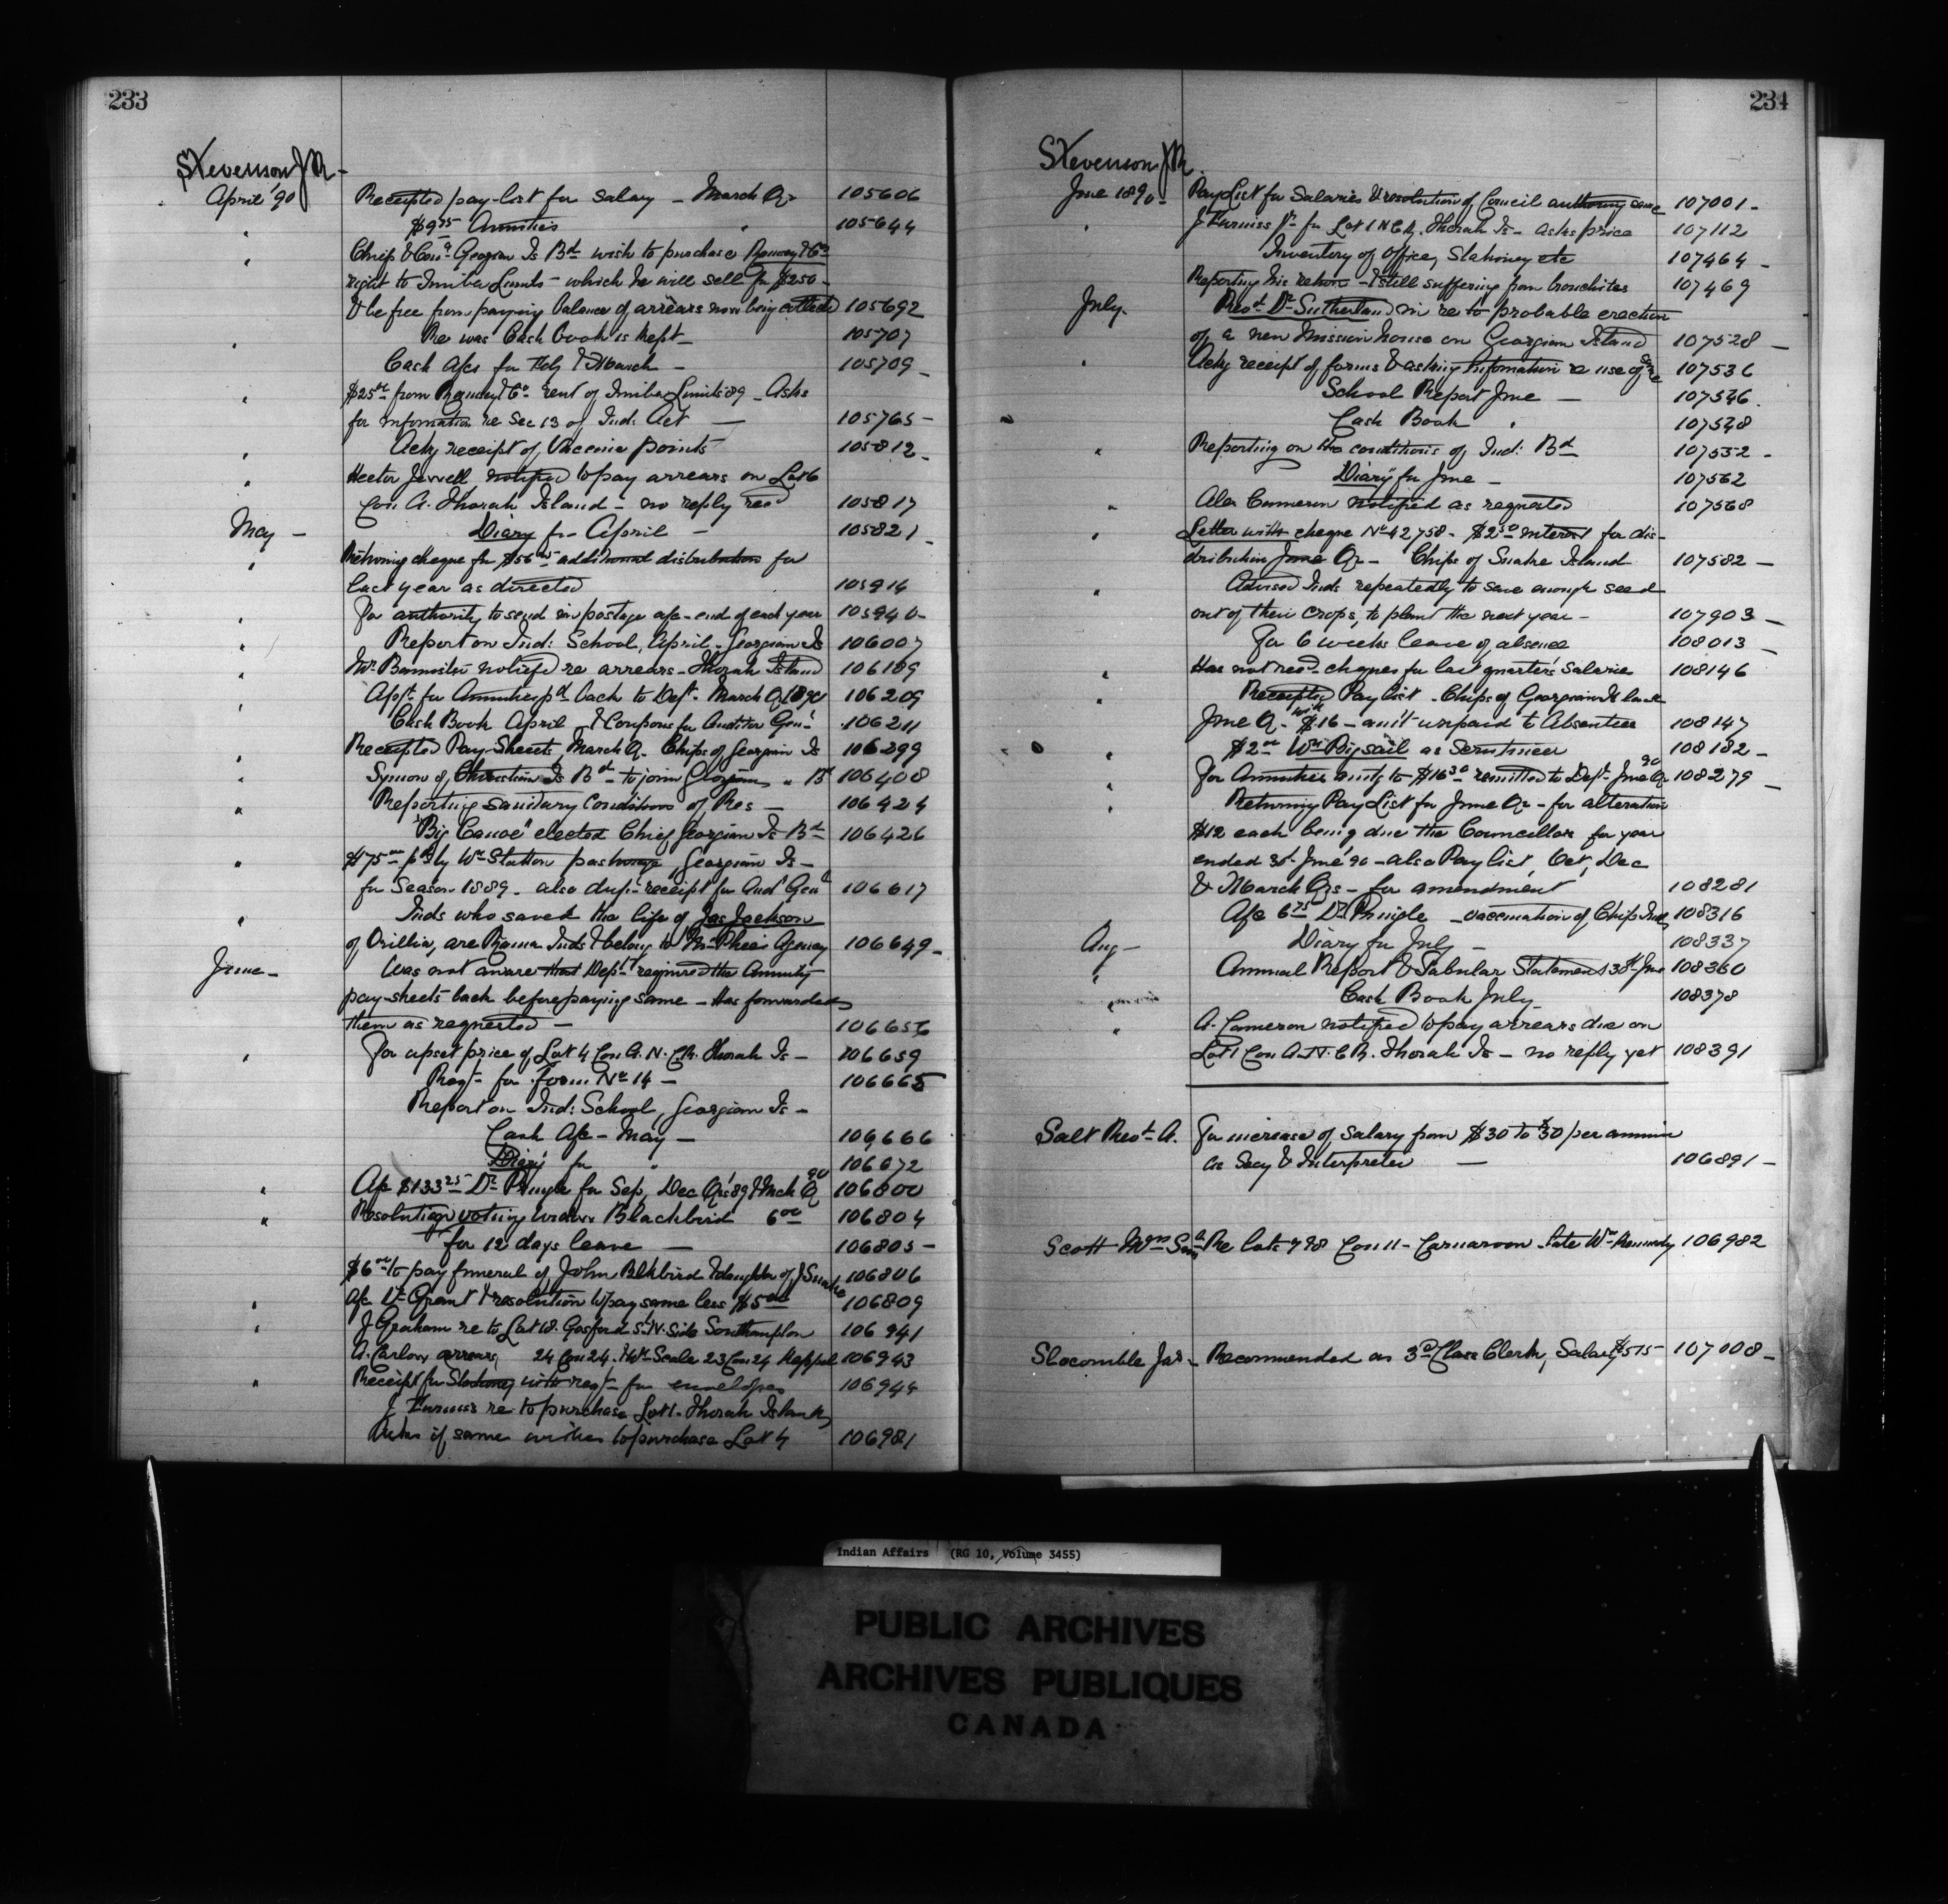 233
Stevenson J R -
April '90 Receipted pay-list for salary - March Qr 105606
" $9.75 Annuities " 105644
" Chief & Coun. Georgian Is Bd wish to purchase Ramsey & Co
right to Timber Limits - which he will sell for $250 -
& be free from paying balance of arrears now being collected 105692
" Re was Cash book is kept - 105707
" Cash a/cs for Feby & March - 105709 -
" $25.00 from Ramsey & Co rent of Timber Limits '89 - Asks
for information re Sec 13 of Ind: Act — 105765 -
" Ackg receipt of Vaccine points 105812 -
" Hector Jewell notified to pay arrears on Lot 6
Con A. Thorah Island - no reply recd 105817
May - Diary for April - 105821 -
" Returning cheque for $56 additional distribution for
last year as directed 105914
" For authority to send in postage a/c - end of each year 105940 -
" Report on Ind: School, April - Georgian Is 106007
" Mr. Bannister notified re arrears - Thorah Island 106189
" Appt. for Annuities pd back to Dept. March Q 1890 106209
Cash Book April & Coupons for Auditor Genl 106211
" Receipted Pay-Sheets, March Q. Chips of Georgian Is 106299
" Symon of Christian Is Bd - to join Georgian " Bd 106408
" Reporting sanitary Conditions of Res - 106424
"Big Canoe" elected Chief Georgian Is Bd 106426
" $75.00 pd by Wm Statton pasturage, Georgian Is -
for Season 1889 - also dup: receipt for Aud Genl 106617
" Inds who saved the life of Jas Jackson
of Orillia, are Rama Inds & belong to McPhee's Agency 106649 -
June - Was not aware that Dept required the Annuity
pay-sheets back before paying same - Has forwarded
them as requested - 106656
" For upset price of Lot 4 Con A. N. C.R. Thorah Is - 106659
Reqt. for form No 14 - 106665
Report on Ind: School, Georgian Is -
Cash A/c - May - 106666
Diary for " 106672
" A/c $133.25 Dr Pringle for Sep, Dec Qrs '89 & Mch Q 90 106800
" Resolution voting widow Blackbird 6.00 106804
for 12 days leave — 106805 -
$6.00 to pay funeral of John Blkbird & daughter of J Snake 106806
" A/c Dr Grant & resolution to pay same less $5.00 106809
" J Graham re to Lot 18. Gosford St N. Side Southampton 106941
A. Carlow arrears, 24 Con 24, & Wm Scale 23 Con 24 Keppel 106943
" Receipt for Stationery with reqt for envelopes 106944
J Furniss re to purchase Lot 1. Thorah Island,
Asks if same wishes to purchase Lot 4 106981
234
Stevenson J R.
June 1890 - Pay List for Salaries & resolution of Council authorizing same 107001 -
" J Furniss Jr. for Lot 1 N C R. Thorah Is - asks price 107112
Inventory of Office, Stationery etc 107464 -
Reporting his return - & still suffering from bronchitis 107469
July - Revd Dr Sutherland in re to probable erection
of a new Mission house on Georgian Island 107528 -
" Ackg receipt of forms & asking information re use of same 107536
School Report June — 107546.
Cash Book " 107548
" Reporting on the conditions of Ind: Bd 107552 -
Diary for June - 107562
" Alex Cameron notified as requested 107568
" Letter with cheque No 42758 - $2.50 interest for dis-
tribution June Qr - Chips of Snake Island 107582 -
" Advised Inds repeatedly to save enough seed
out of their crops, to plant the next year - 107903 -
For 6 weeks leave of absence 108013 -
" Has not recd cheques for last quarter's Salaries 108146
" Receipted Pay list - Chips of Georgian Is
June Q. with $16 - amt unpaid to Absentees 108147
" $2.00 Wm Bigsail as Scrutineer 108182 -
" For Annuities amtg to $16.30 remitted to Dept June Q 90 108279 -
" Returning Pay List for June Qr - for alteration
$12 each being due the Councillors for year
ended 30 June '90 - also Pay list, Oct, Dec
& March Qrs - for amendment 108281
A/c 6.75 Dr Pringle - vaccination of Chip Inds 108316
Aug - Diary for July - 108337
" Annual Report & Tabular Statement 30 June 108360
" Cash Book July - 108378
" A. Cameron notified to pay arrears due on
Lot 1 Con A N. C R. Thorah Is - no reply yet 108391
Salt Revd A. For increase of Salary from $30 to $50 per annum
as Secy & Interpreter — 106891 -
Scott Mrs Re lots 7 & 8 Con 11 - Carnarvon - late Wm Kennedy 106982
Slocomble Jas - Recommended as 3rd Class Clerk, Salary $515 - 107008 -
Indian Affairs (RG 10, Volume 3455)
PUBLIC ARCHIVES
ARCHIVES PUBLIQUES
CANADA